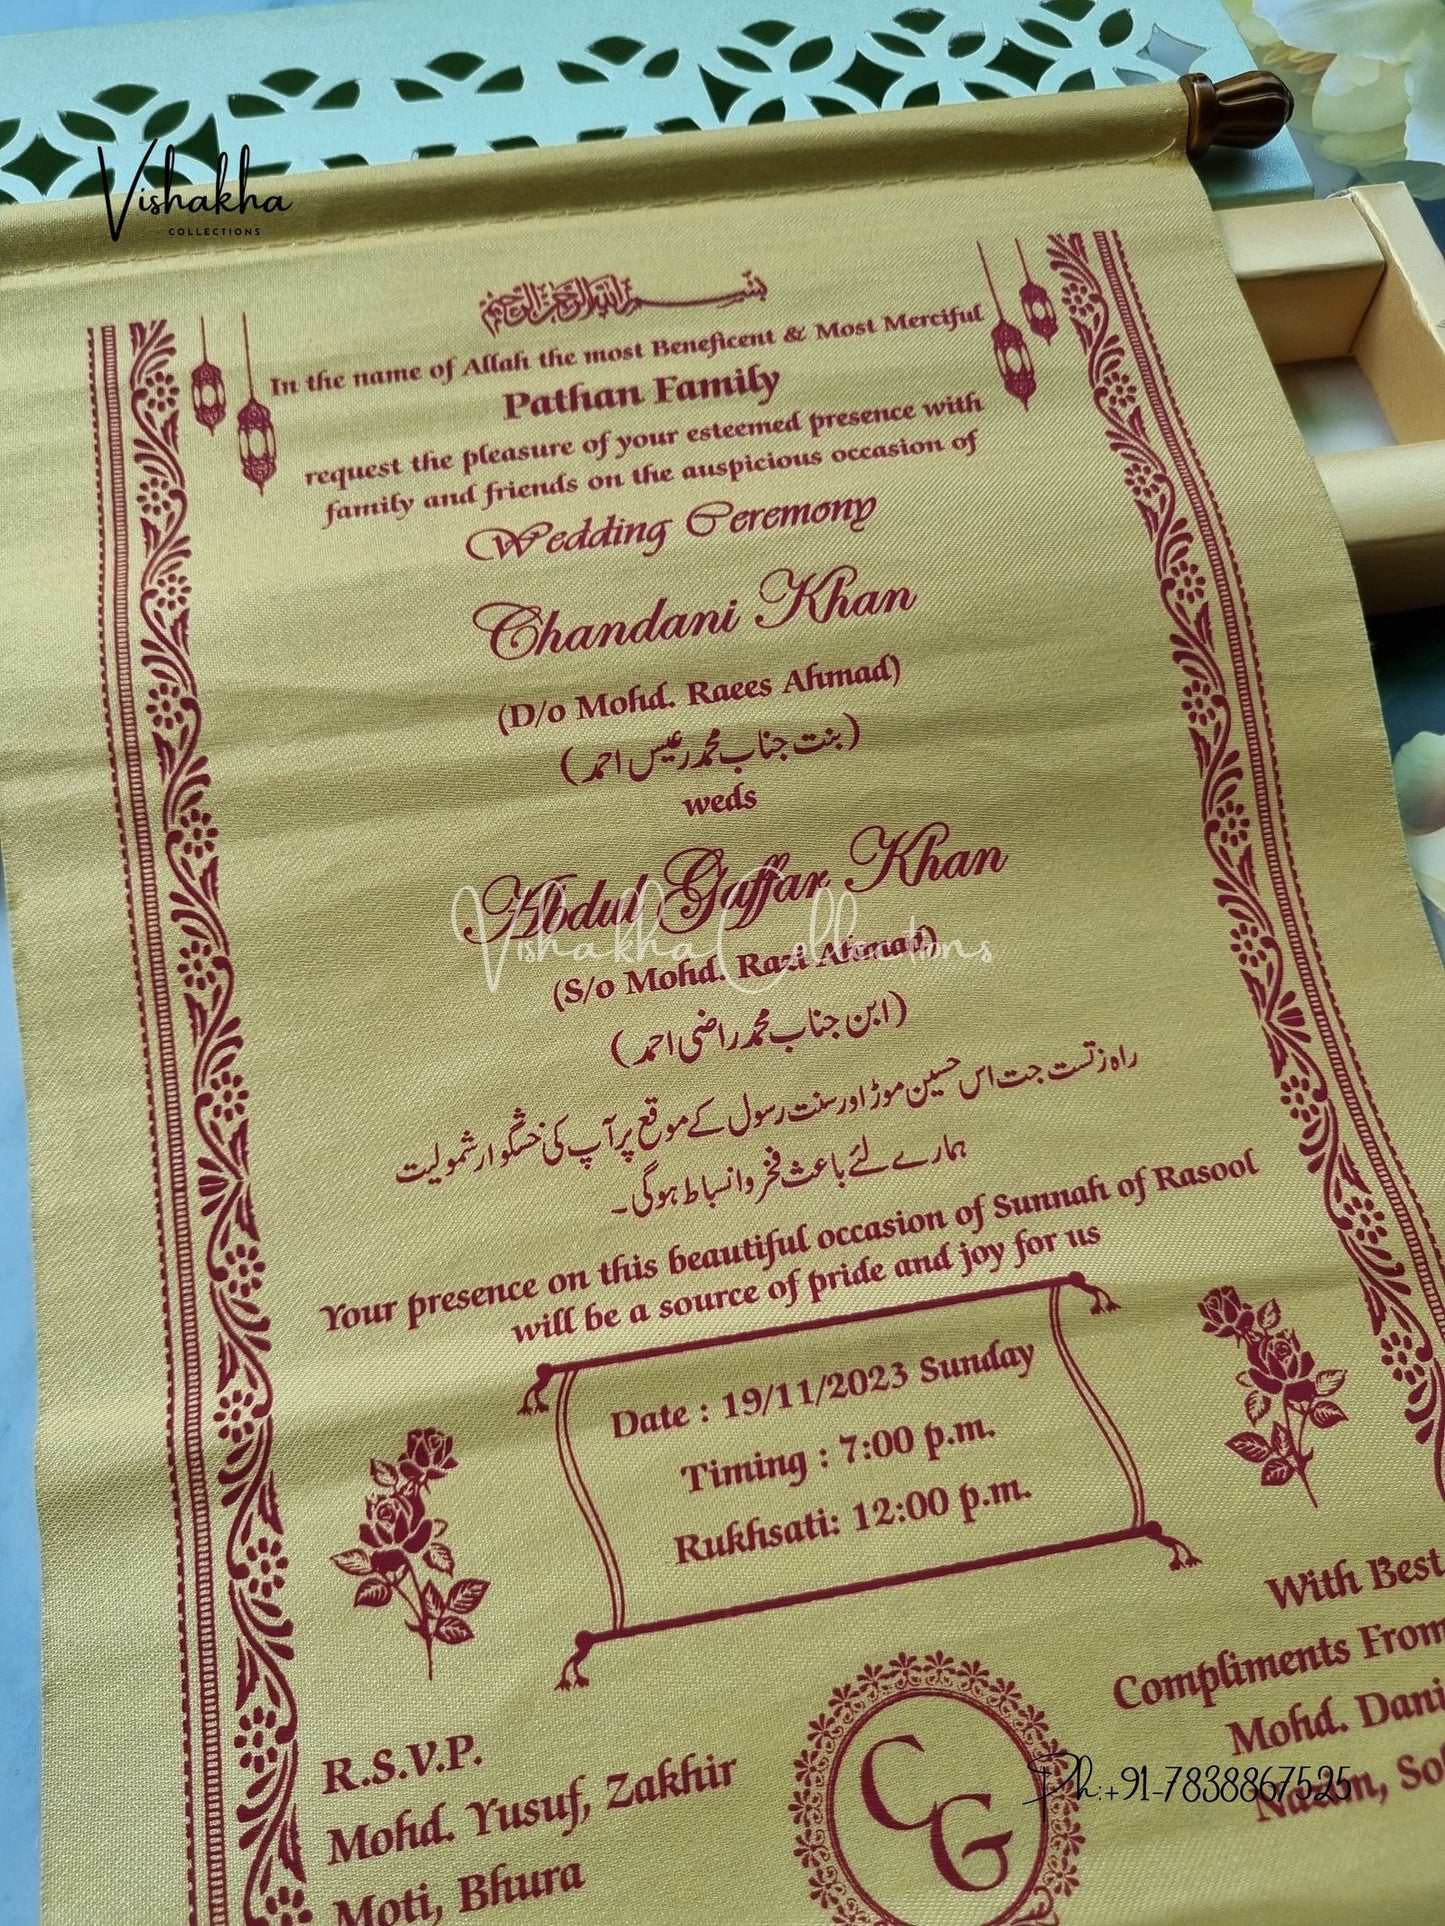 Vishakha
COLLECTIONS
بسم الله الرحمن الرحيم
In the name of Allah the most Beneficent & Most Merciful
Pathan Family
request the pleasure of your esteemed presence with
family and friends on the auspicious occasion of
Wedding Ceremony
Chandani Khan
(D/o Mohd. Raees Ahmad)
(بنت جناب محمد رعیس احمد)
weds
Abdul Gaffar Khan
Vishakha Collections
(S/o Mohd. Razi Ahmad)
(ابن جناب محمد راضی احمد)
راہ زتست جت اس حسین موڑ اور سنت رسول کے موقع پر آپ کی خشگوار شمولیت
ہمارے لئے باعث فخر و انبساط ہوگی۔
Your presence on this beautiful occasion of Sunnah of Rasool
will be a source of pride and joy for us
Date : 19/11/2023 Sunday
Timing : 7:00 p.m.
Rukhsati: 12:00 p.m.
R.S.V.P.
Mohd. Yusuf, Zakhir
Moti, Bhura
CG
With Best
Compliments From
Mohd. Dani
Ph:+91-7838867525
Nazim, So